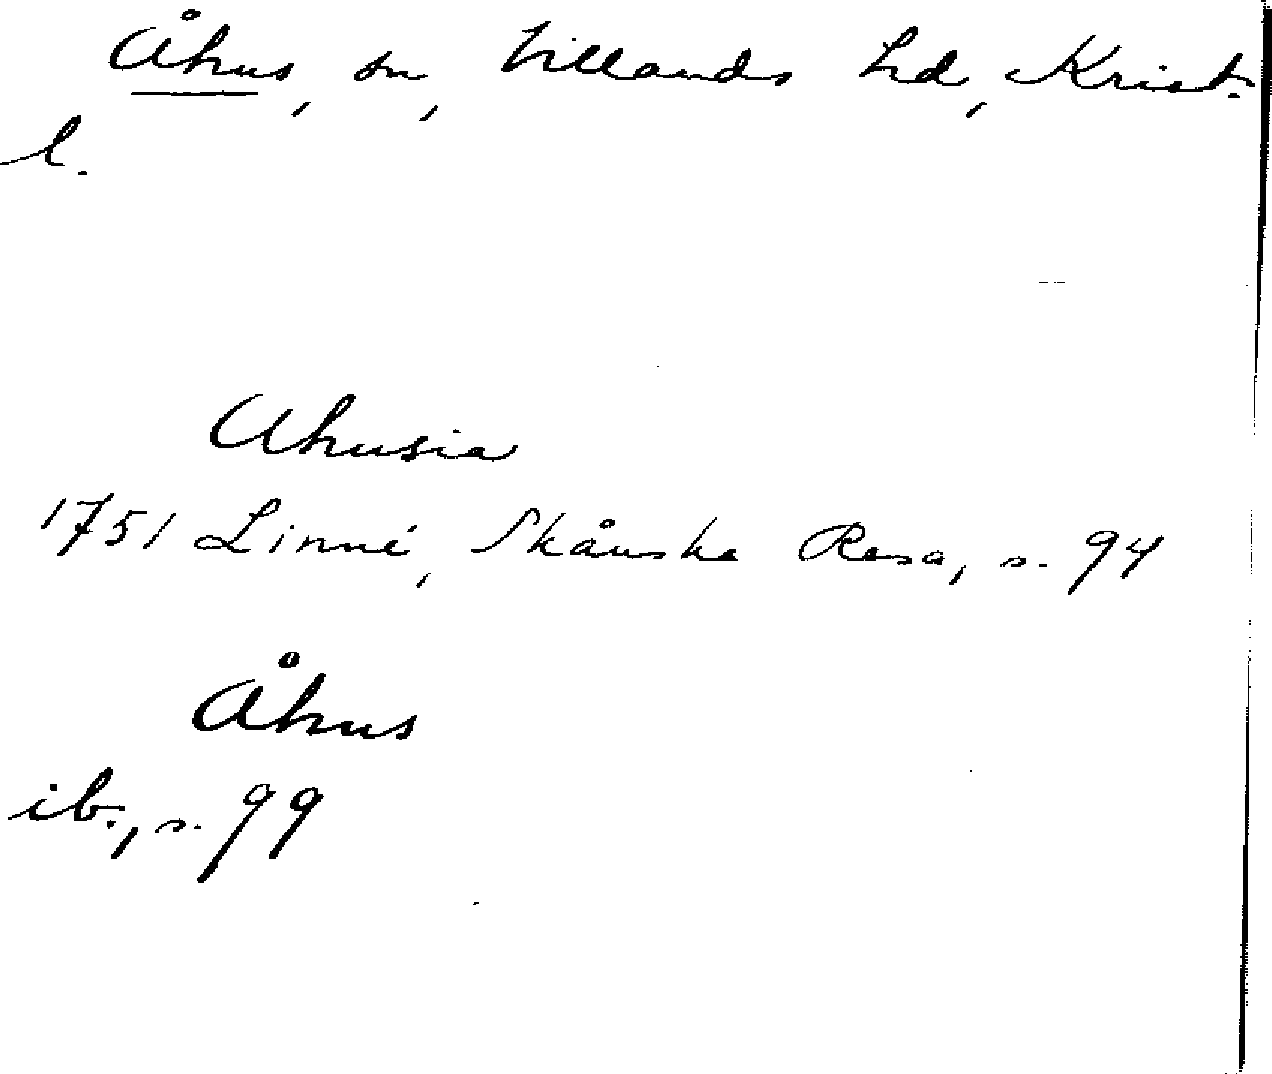 Åhus, sn, Villands hd, Krist.
l.
Ahusia
1751 Linné, Skånska Resa, s. 94
Åhus
ib., s. 99